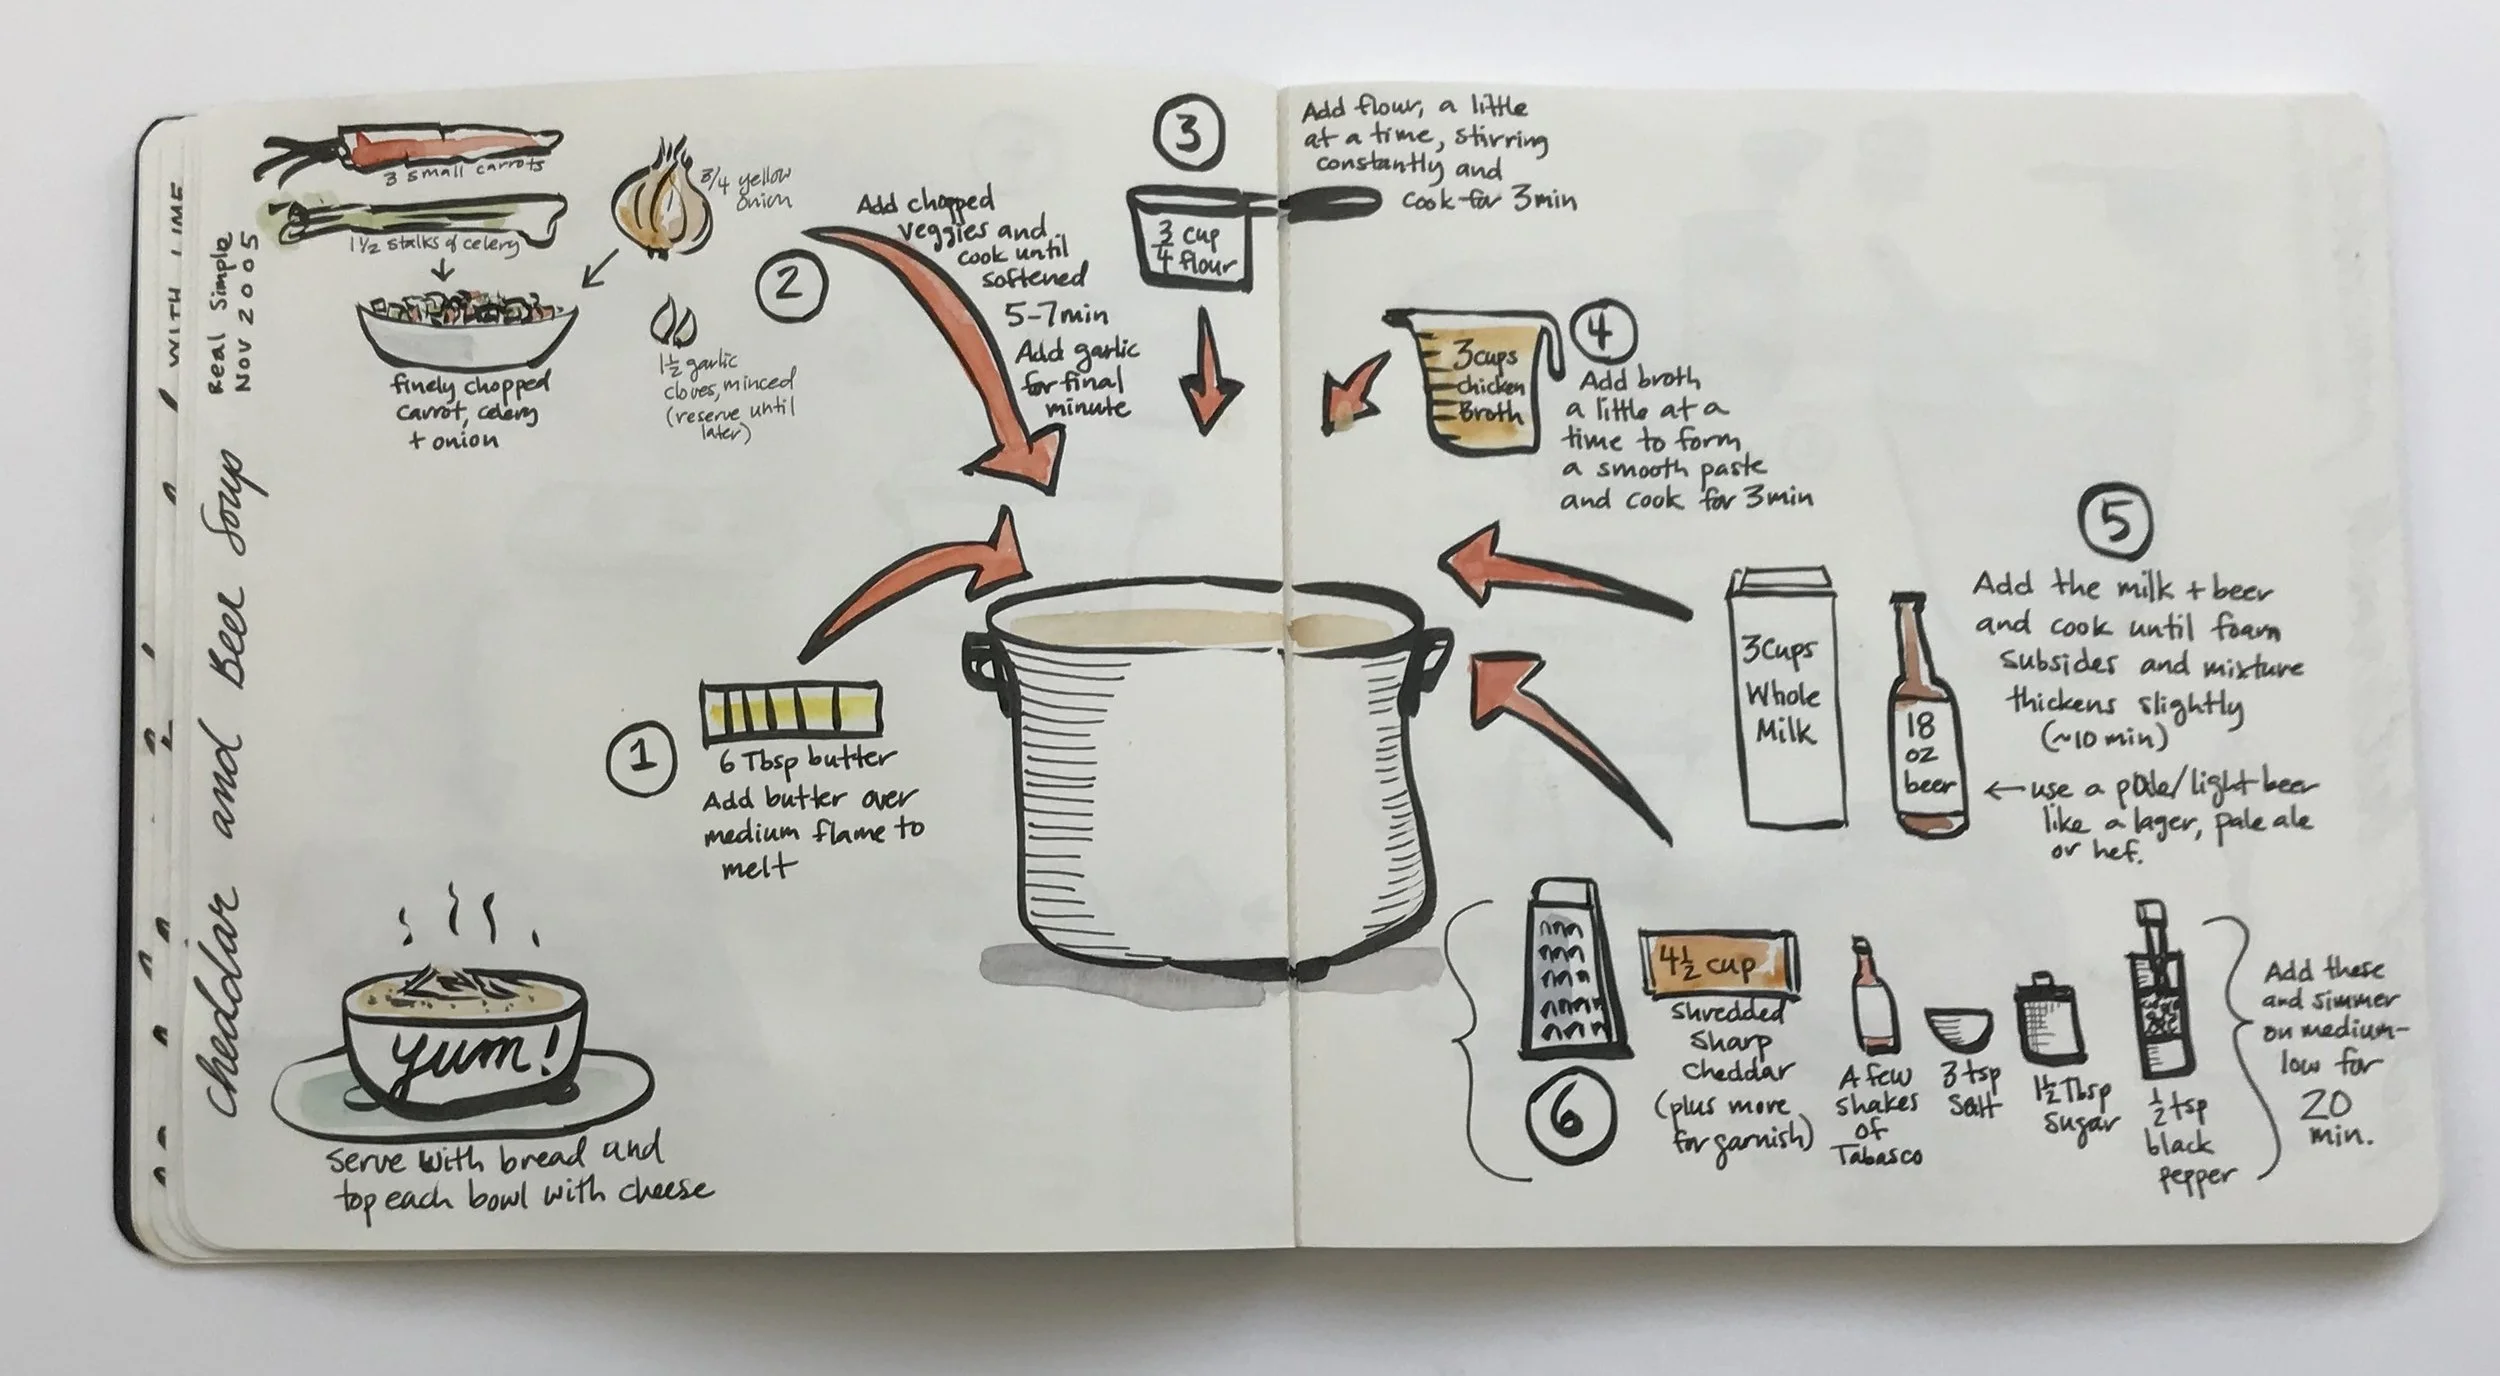 WITH LIME
Cheddar and Beer Soup
Real Simple
Nov 2005
3 small carrots
1 1/2 stalks of celery
3/4 yellow
onion
finely chopped
carrot, celery
+ onion
1 1/2 garlic
cloves, minced
(reserve until
later)
1
6 Tbsp butter
Add butter over
medium flame to
melt
2
Add chopped
veggies and
cook until
softened
5-7min
Add garlic
for final
minute
3
3/4 cup
flour
Add flour, a little
at a time, stirring
constantly and
cook for 3min
4
3cups
chicken
Broth
Add broth
a little at a
time to form
a smooth paste
and cook for 3min
5
3Cups
Whole
Milk
18
oz
beer
Add the milk + beer
and cook until foam
subsides and mixture
thickens slightly
(~10 min)
← use a pale/light beer
like a lager, pale ale
or hef.
6
4 1/2 cup
shredded
sharp
cheddar
(plus more
for garnish)
A few
shakes
of
Tabasco
3 tsp
Salt
1 1/2 Tbsp
sugar
1/2 tsp
black
pepper
Add these
and simmer
on medium-
low for
20
min.
Yum!
Serve with bread and
top each bowl with cheese